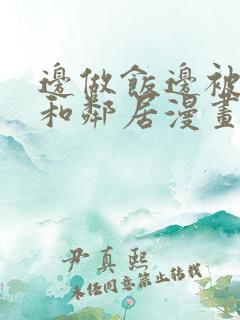 邊做飯邊被
和鄰居漫畫
尹真熙
未經同意禁止轉載